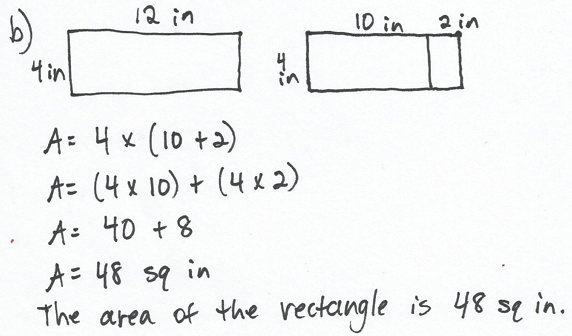 b)
12 in
4 in
10 in 2 in
4 in
A = 4 x (10 + 2)
A = (4 x 10) + (4 x 2)
A = 40 + 8
A = 48 sq in
The area of the rectangle is 48 sq in.